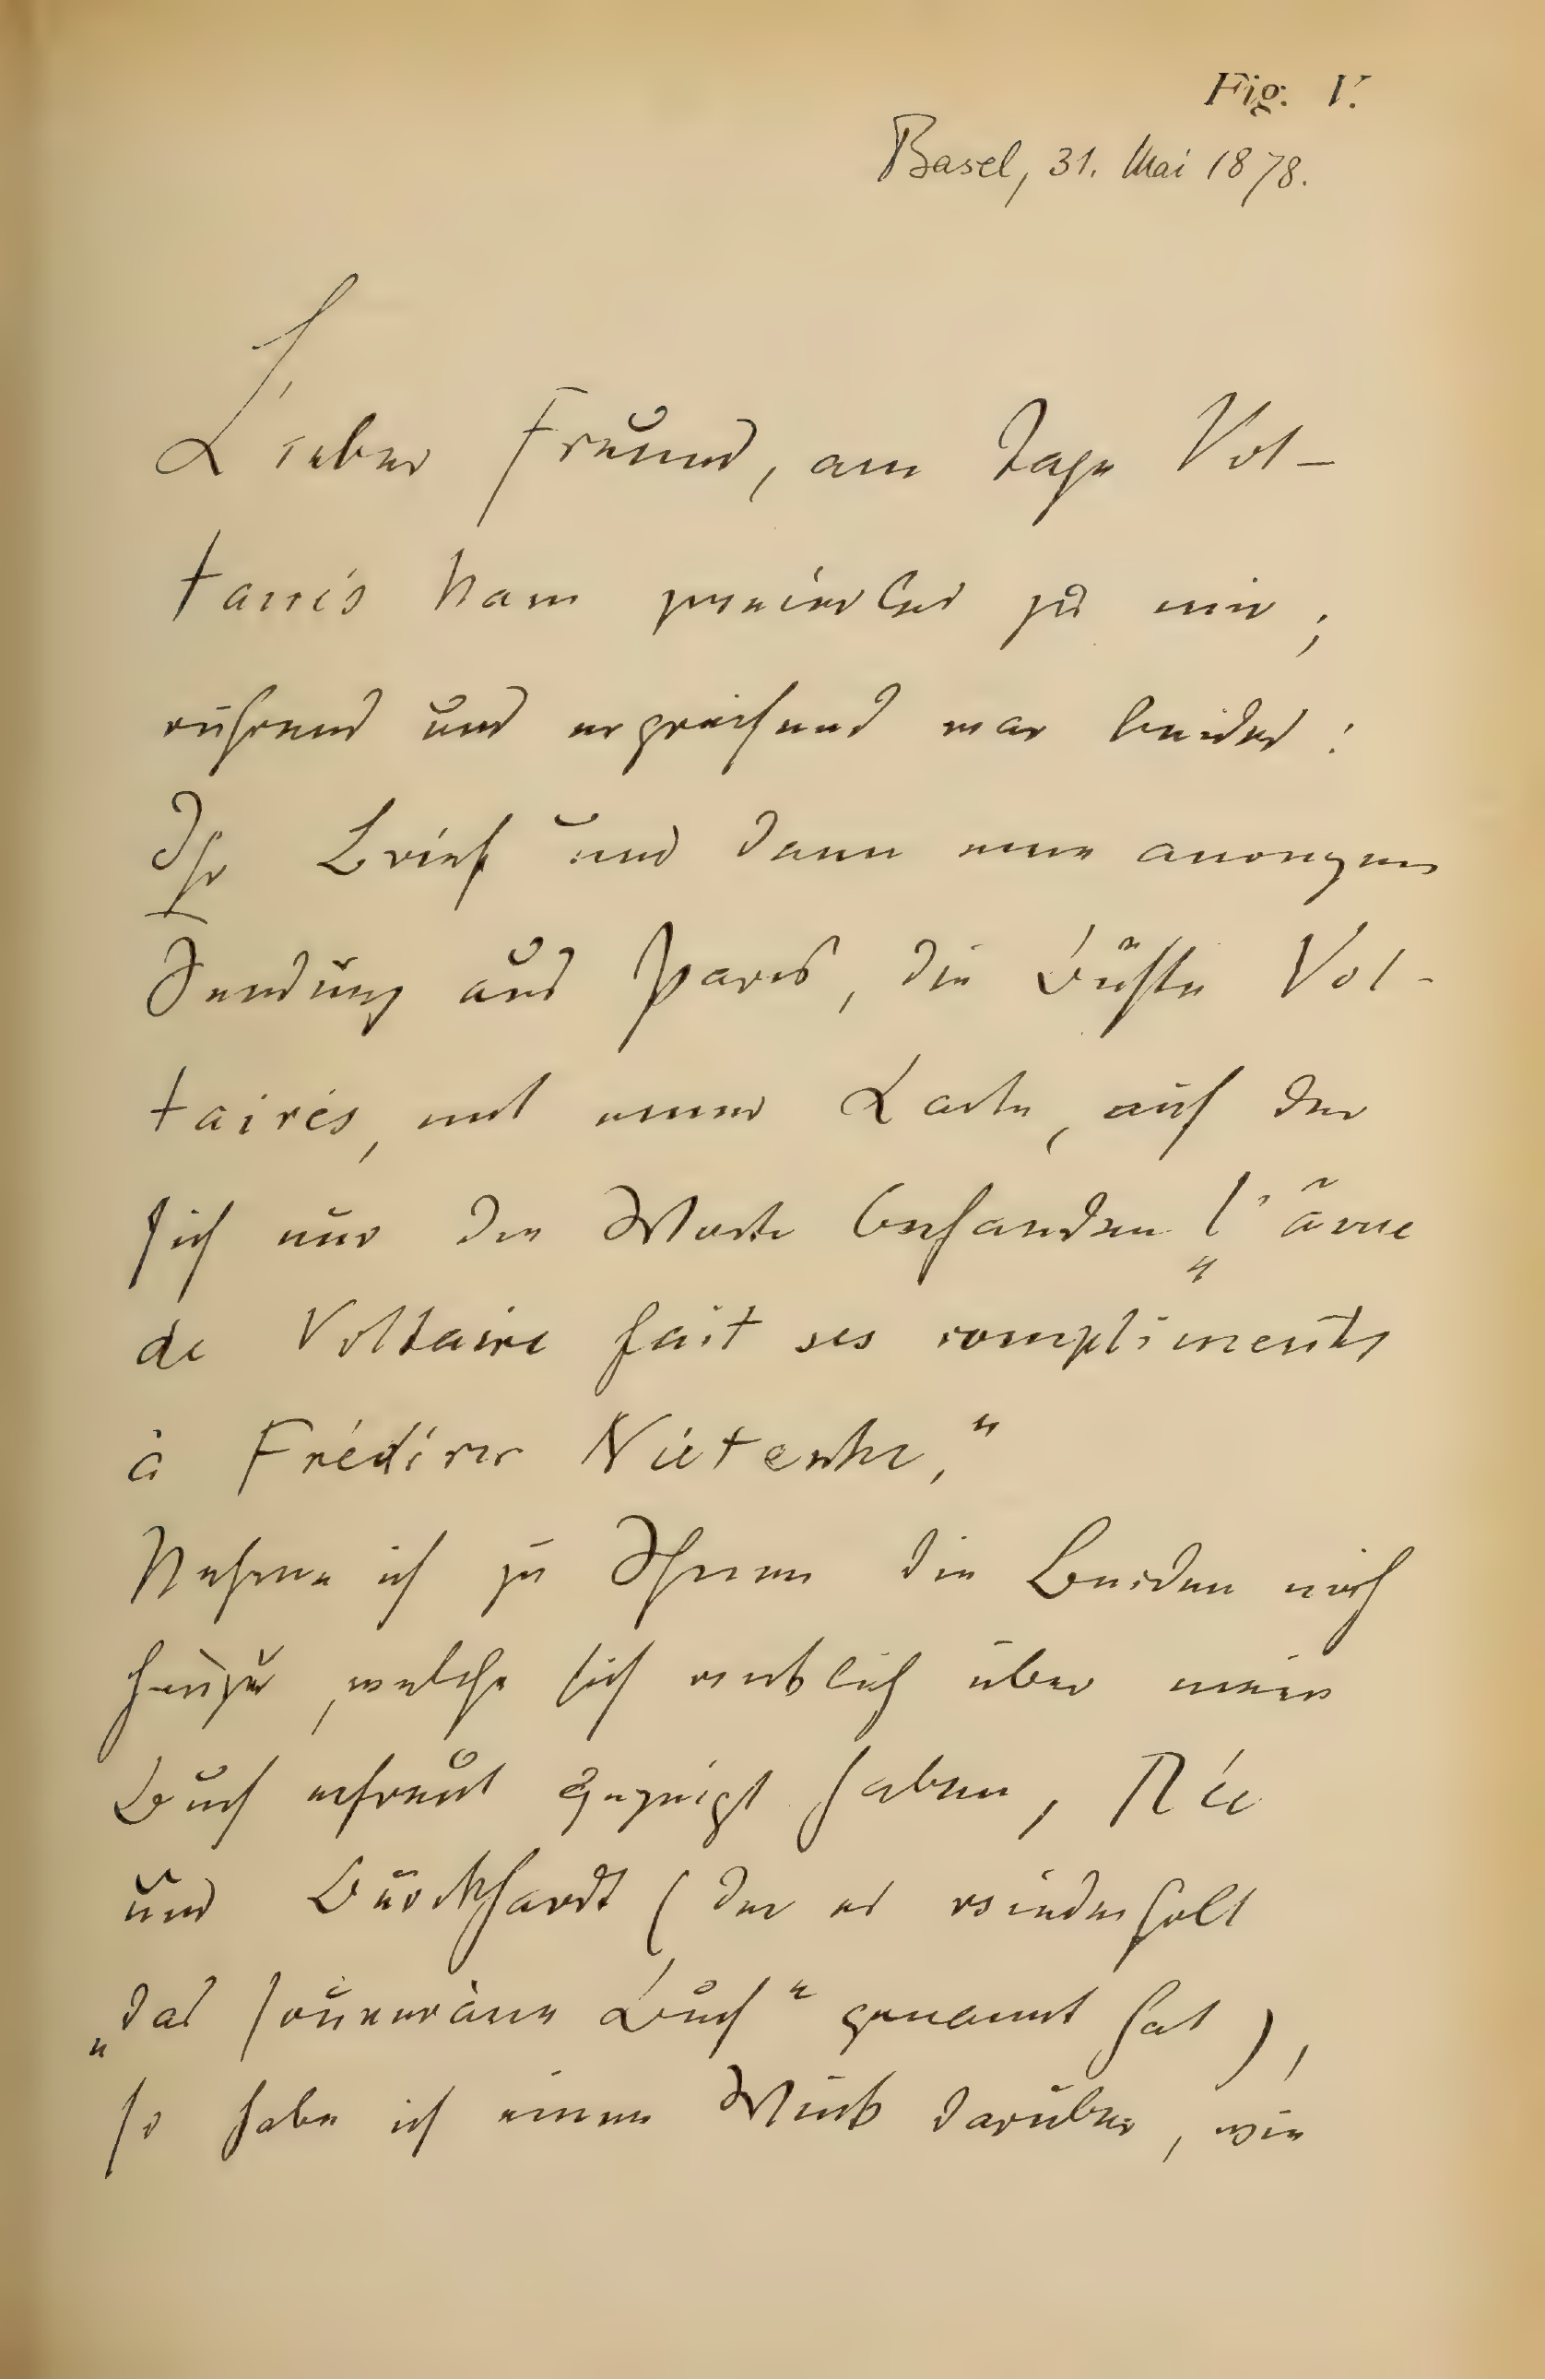 Fig. V.
Basel, 31. Mai 1878.
Lieber Freund, am Tage Vol-
taire's kam zweierlei zu mir;
rührend und ergreifend war beides:
Ihr Brief und dann eine anonyme
Sendung aus Paris, die Büste Vol-
taire's, mit einer Karte, auf der
sich nur die Worte befanden „l'âme
de Voltaire fait ses compliments
à Frédéric Nietzsche."
Nehme ich zu Ihnen die Beiden noch
hinzu, welche sich wirklich über mein
Buch erfreut gezeigt haben, Rée
und Burckhardt (der es wiederholt
„das souveräne Buch" genannt hat),
so habe ich einen Wink darüber, wie